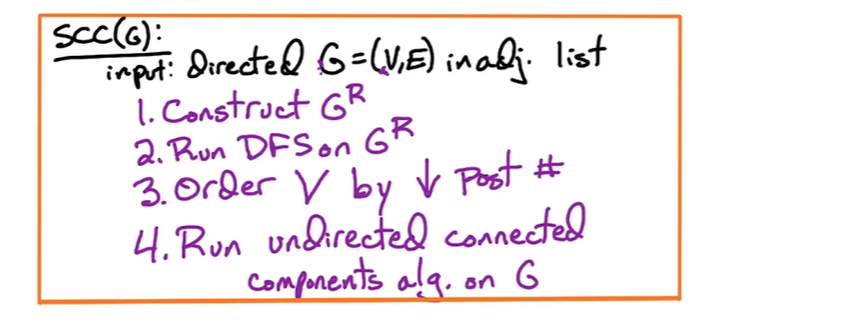 SCC(G):
input: Directed G=(V,E) in adj. list
1. Construct G^R
2. Run DFS on G^R
3. Order V by ↓ Post #
4. Run undirected connected
components alg. on G